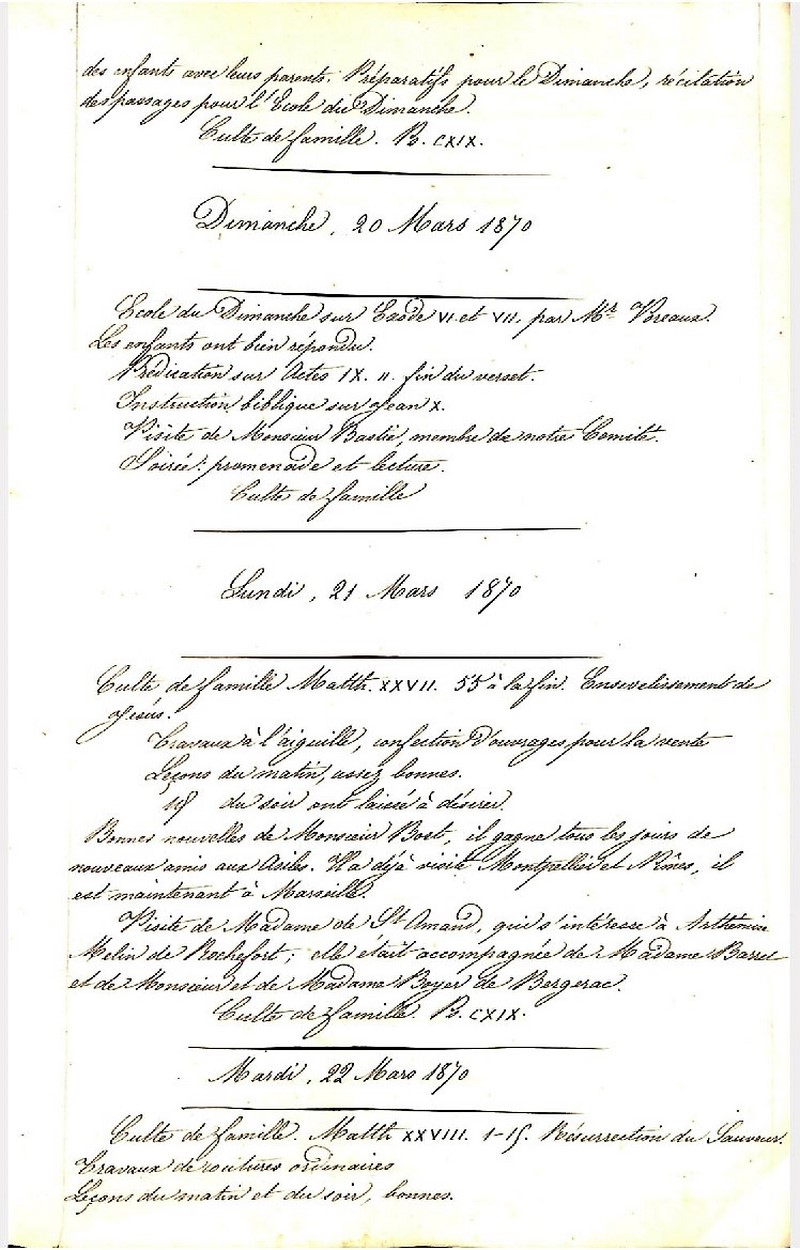 des enfants avec leurs parents. Préparatifs pour le Dimanche, récitation
des passages pour l'Ecole du Dimanche.
Culte de famille. Ps. CXIX.
Dimanche, 20 Mars 1870
Ecole du Dimanche sur Exode VI et VII. par Mr.
Les enfants ont bien répondu.
Prédication sur Actes IX. 11. fin du verset.
Instruction biblique sur Jean X.
Visite de Monsieur Bastié, membre de notre Comité.
Soirée: promenade et lecture.
Culte de famille
Lundi, 21 Mars 1870
Culte de famille Matth. XXVII. 55 à la fin. Ensevelissement de
Jésus.
Travaux à l'aiguille, confection d'ouvrages pour la vente
Leçons du matin, assez bonnes.
id du soir ont laissé à désirer.
Bonnes nouvelles de Monsieur Bost, il gagne tous les jours de
nouveaux amis aux Asiles. Il a déjà visité Montpellier et Nîmes, il
est maintenant à Marseille.
Visite de Madame de St Amand, qui s'intéresse à Arthémise
Melin de Rochefort; elle était accompagnée de Madame Barrel
et de Monsieur et de Madame Boyer de Bergerac.
Culte de famille. Ps. CXIX.
Mardi, 22 Mars 1870
Culte de famille. Matth XXVIII. 1-15. Résurrection du Sauveur.
Travaux de coutures ordinaires
Leçons du matin et du soir, bonnes.